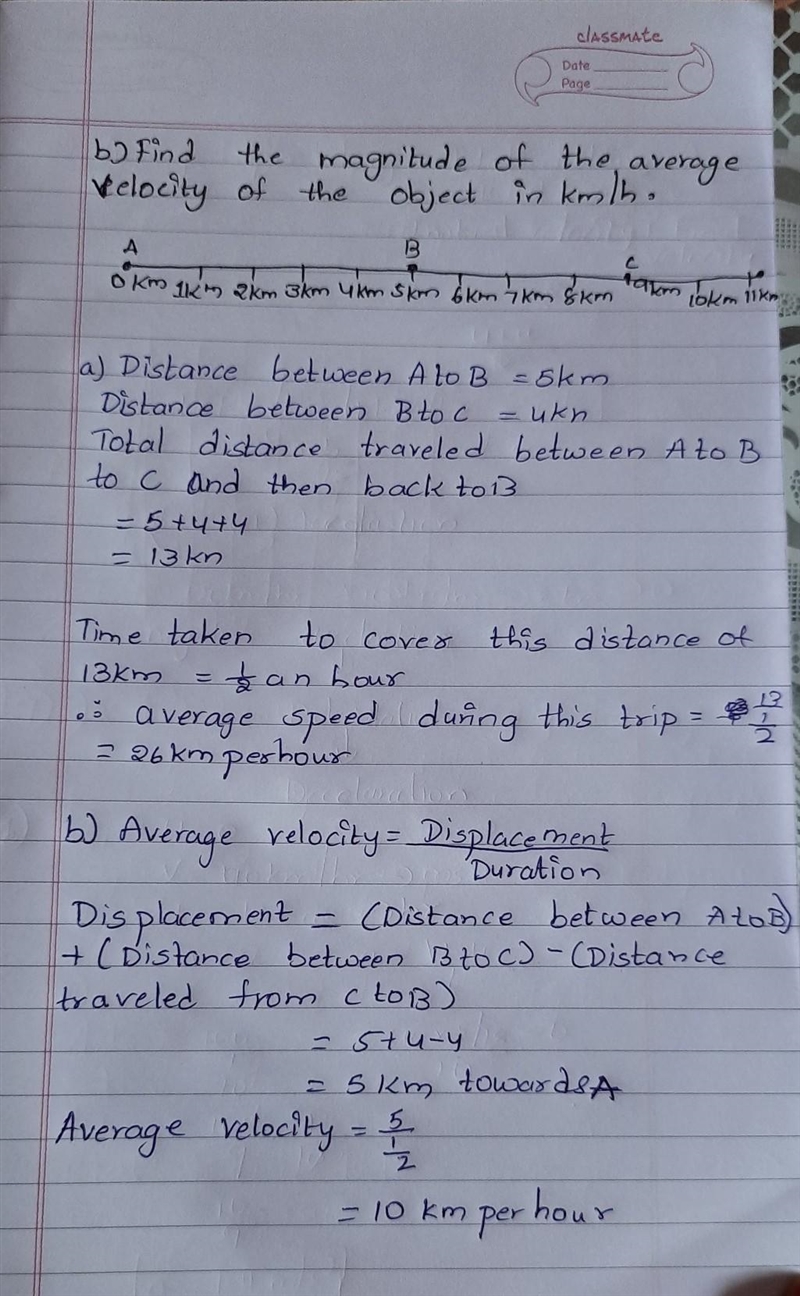 classmate
Date
Page
b) Find the magnitude of the average
velocity of the object in km/h.
A B C
0km 1km 2km 3km 4km 5km 6km 7km 8km 9km 10km 11km
a) Distance between A to B = 5km
Distance between B to C = 4kn
Total distance traveled between A to B
to C and then back to B
= 5+4+4
= 13kn
Time taken to cover this distance of
13km = 1/2 an hour
∴ average speed during this trip = 13/1/2
= 26km per hour
b) Average velocity = Displacement
Duration
Displacement = (Distance between A to B)
+ (Distance between B to C) - (Distance
traveled from C to B)
= 5+4-4
= 5km towards A
Average velocity = 5/1/2
= 10 km per hour